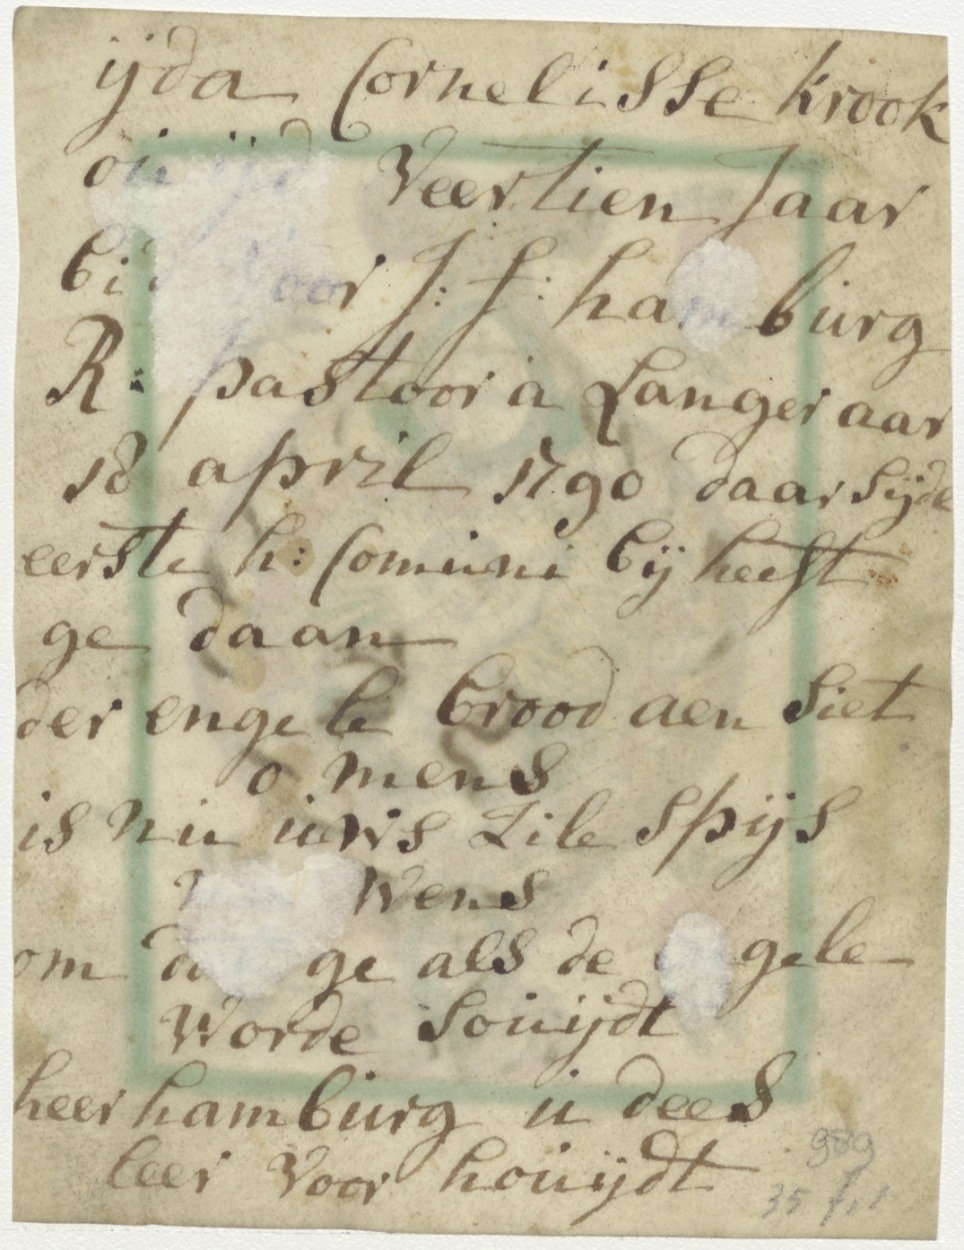 ijda Cornelisse Krook
Veertien Jaar
door J: F: hamburg
R: pastoor a Langeraar
18 april 1790 daar Sijde
eerste h: Comuni bij heeft
ge daan
der engele brood aen Siet
o mens
is nu uws Zile Spijs
Wens
om ge als de engele
Worde Souijdt
heer hamburg u dees
leer Voor houijdt
989
35